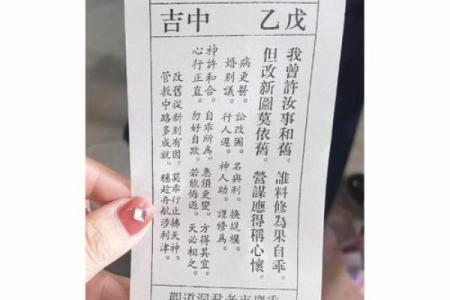 戊乙 中吉
我曾許汝事和舊。誰料修為果自乖。
但改新圖莫依舊。營謀應得稱心懷。
病更醫。訟改圖。名與利。換規模。
婚別議。行人遲。神人助。謹修為。
神許和合。自乖所為。急須更變。方得其宜。
心行正直。勿好自欺。若能悔過。天必相之。
改舊從新別有因。莫乖行止拂天神。
管教中路多成就。穩趁舟航涉利津。
重慶市老君洞道觀